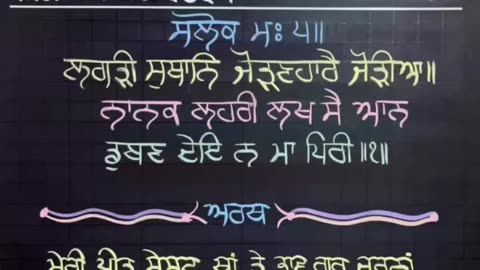 ਸਲੋਕ ਮਃ ੫॥
ਲਗੜੀ ਸੁਥਾਨਿ ਜੋੜਣਹਾਰੈ ਜੋੜੀਆ॥
ਨਾਨਕ ਲਹਰੀ ਲਖ ਸੈ ਆਨ
ਡੁਬਣ ਦੇਇ ਨ ਮਾ ਪਿਰੀ॥੧॥
ਅਰਥ
ਮੇਰੀ ਪ੍ਰੀਤ ਥਾਂ ਤੇ